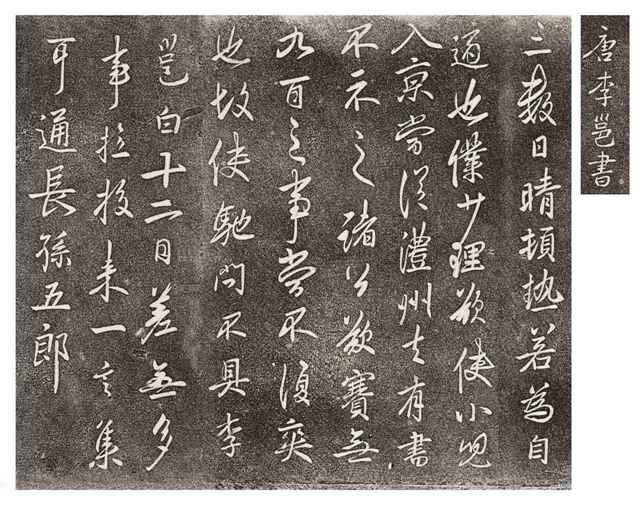 唐李邕書
三數日晴頓熱若為自
適也僕少理欲使小兒
入京當從澧州去有書
不示之諸公欲賽無
九百之事當不復爽
也故使馳問不具李
邕白十二日差無多
事拉拔來一言集
耳通長孫五郎